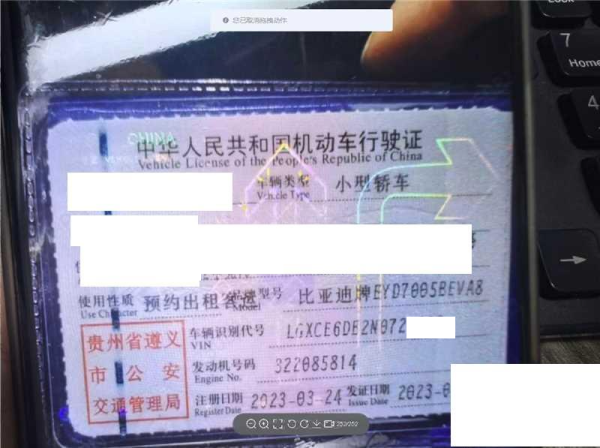 您已取消拖拽动作
7
Home
4
CHINA
中华人民共和国机动车行驶证
Vehicle License of the People's Republic of China
车辆类型 小型轿车
Vehicle Type
使用性质 预约出租客运 品牌型号 比亚迪牌BYD7005BEVA8
Use Character Model
贵州省遵义
市公安
交通管理局
车辆识别代号 LGXCE6DB2N072
VIN
发动机号码 322085814
Engine No.
注册日期 2023-03-24 发证日期 2023-0
Register Date Issue Date